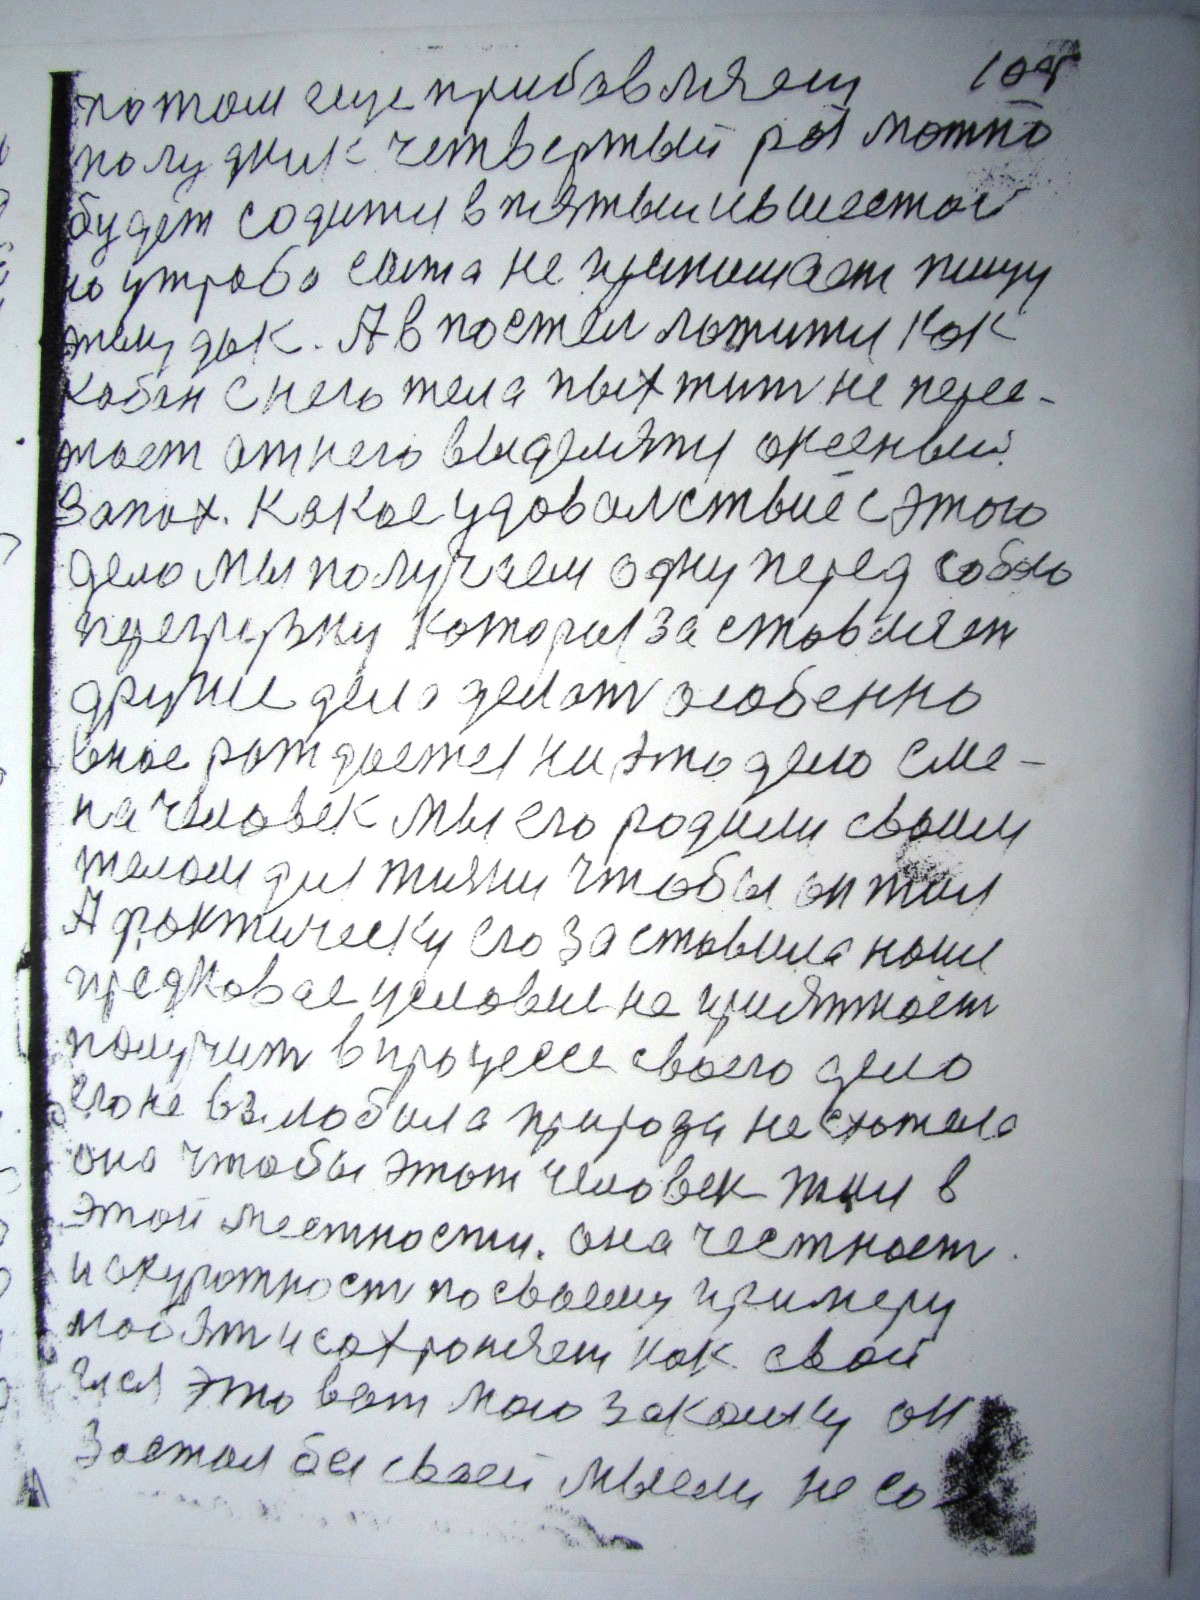 потом еще прибавляем 109
полудник четвертый раз можно
будет содити в пятыи и в шестой
но утроба сыта не принимает пищу
желудык. А в постел ложится как
кабан с него тела пыхтит не перес-
тает от него выделятся оксеный
запах. Какое удоволствие с этого
дело мы получаем одну перед собою
перегрузку которая заставляет
другие дела делат особенно
рождается на это дело сме-
на человек мы его родили своим
телом для жизни чтобы он жил
А фактическу его заставила наши
предковае условие не приятност
получит в процессе своего дело
его не взлюбила природа не схотела
она чтобы этот человек жил в
этой местности. она честност
и окуратност по своему примеру
любят и сохроняет как свой
это вот мого закалку он
застал бы своей мысли не со